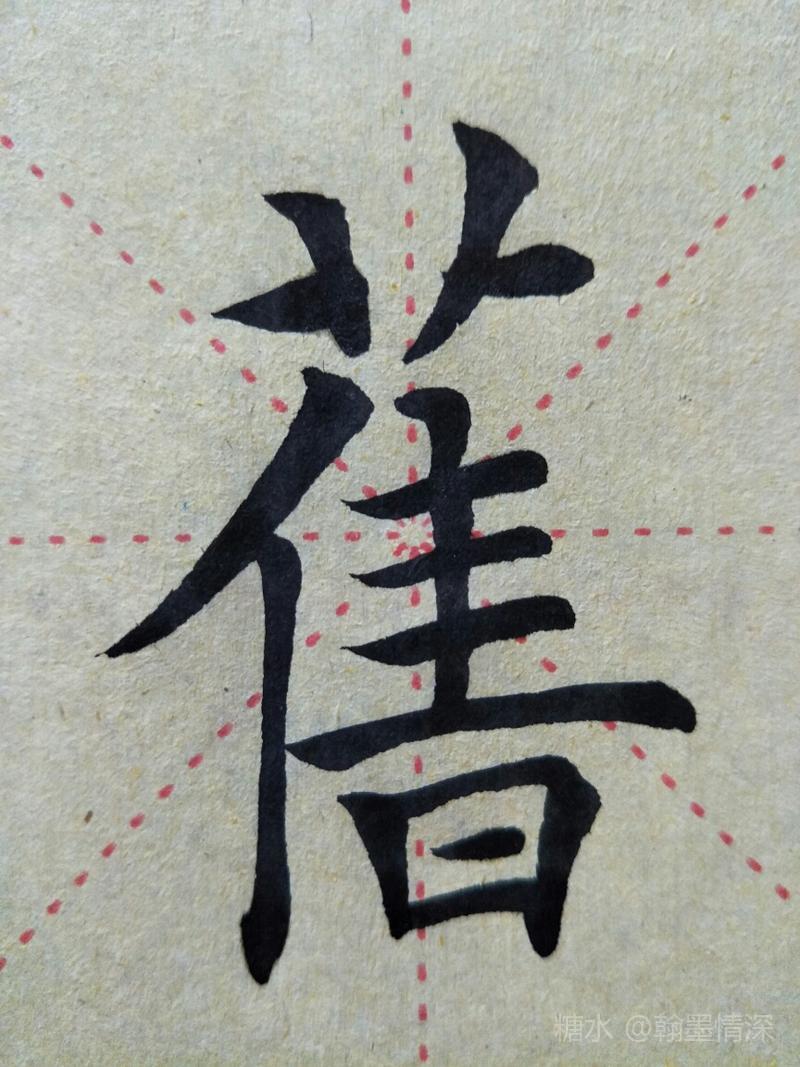 舊
糖水 @翰墨情深